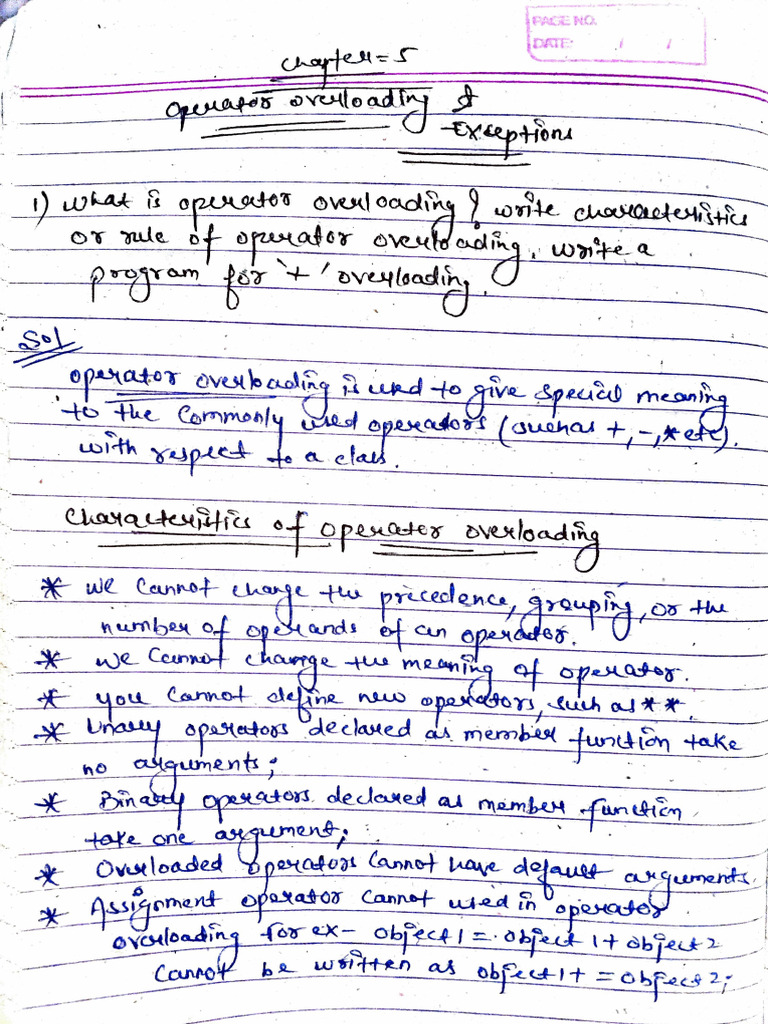 PAGE NO.
DATE: / /
Chapter = 5
operator overloading &
Exceptions
1) What is operator overloading? write characteristics
or rule of operator overloading. write a
program for '+' overloading.
Sol
operator overloading is used to give special meaning
to the commonly used operators (such as +, -, * etc).
with respect to a class.
Characteristics of operator overloading
* We cannot change the precedence, grouping, or the
number of operands of an operator.
* We cannot change the meaning of operator.
* you cannot define new operators, such as **.
* Unary operators declared as member function take
no arguments;
* Binary operators declared as member function
take one argument;
* Overloaded operators cannot have default arguments.
* Assignment operator cannot used in operator
overloading for ex- object1 = object1 + object2
Cannot be written as object1 + = object2;